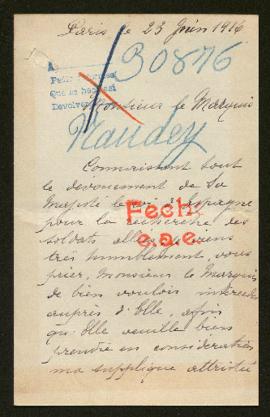 Paris le 23 Juin 1916
30876
A
Devolver
Monsieur le Marquis
Naudey
Connaissant tout
le devouement de Sa
Majesté le roi d'Espagne
pour la recherche des
Fech.
e.a.e.
soldats
très humblement, vous
prier, Monsieur le Marquis
de bien vouloir intercéder
auprès d'Elle, afin
qu'Elle veuille bien
prendre en considération
ma supplique attristée